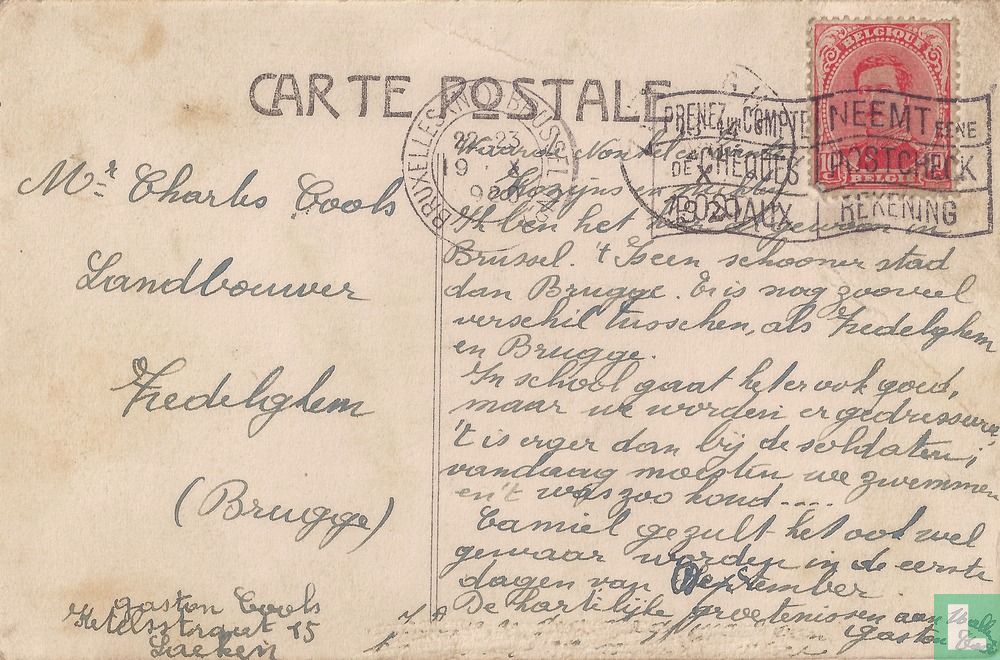 CARTE POSTALE
BELGIQUE
BELGIË
BRUXELLES BRUSSEL
22-23
19 X
1920
PRENEZ UN COMPTE
DE CHEQUES
POSTAUX
NEEMT EENE
POSTCHECK
REKENING
Mr Charles Cools
Landbouwer
Zedelghem
(Brugge)
Gaston Cools
15
Laeken
Waarde Nonkel
Kozijns en
Ik ben het gewoon in
Brussel. 't Is een schooner stad
dan Brugge. Er is nog zooveel
verschil tusschen, als Zedelghem
en Brugge.
In school gaat het er ook goed,
maar we worden er gedresseerd,
't is erger dan bij de soldaten;
vandaag moesten we zwemmen
en 't was zoo koud....
Camiel ge zult het ook wel
gewaar worden in de eerste
dagen van December.
De hartelijke groetenissen aan
Gaston